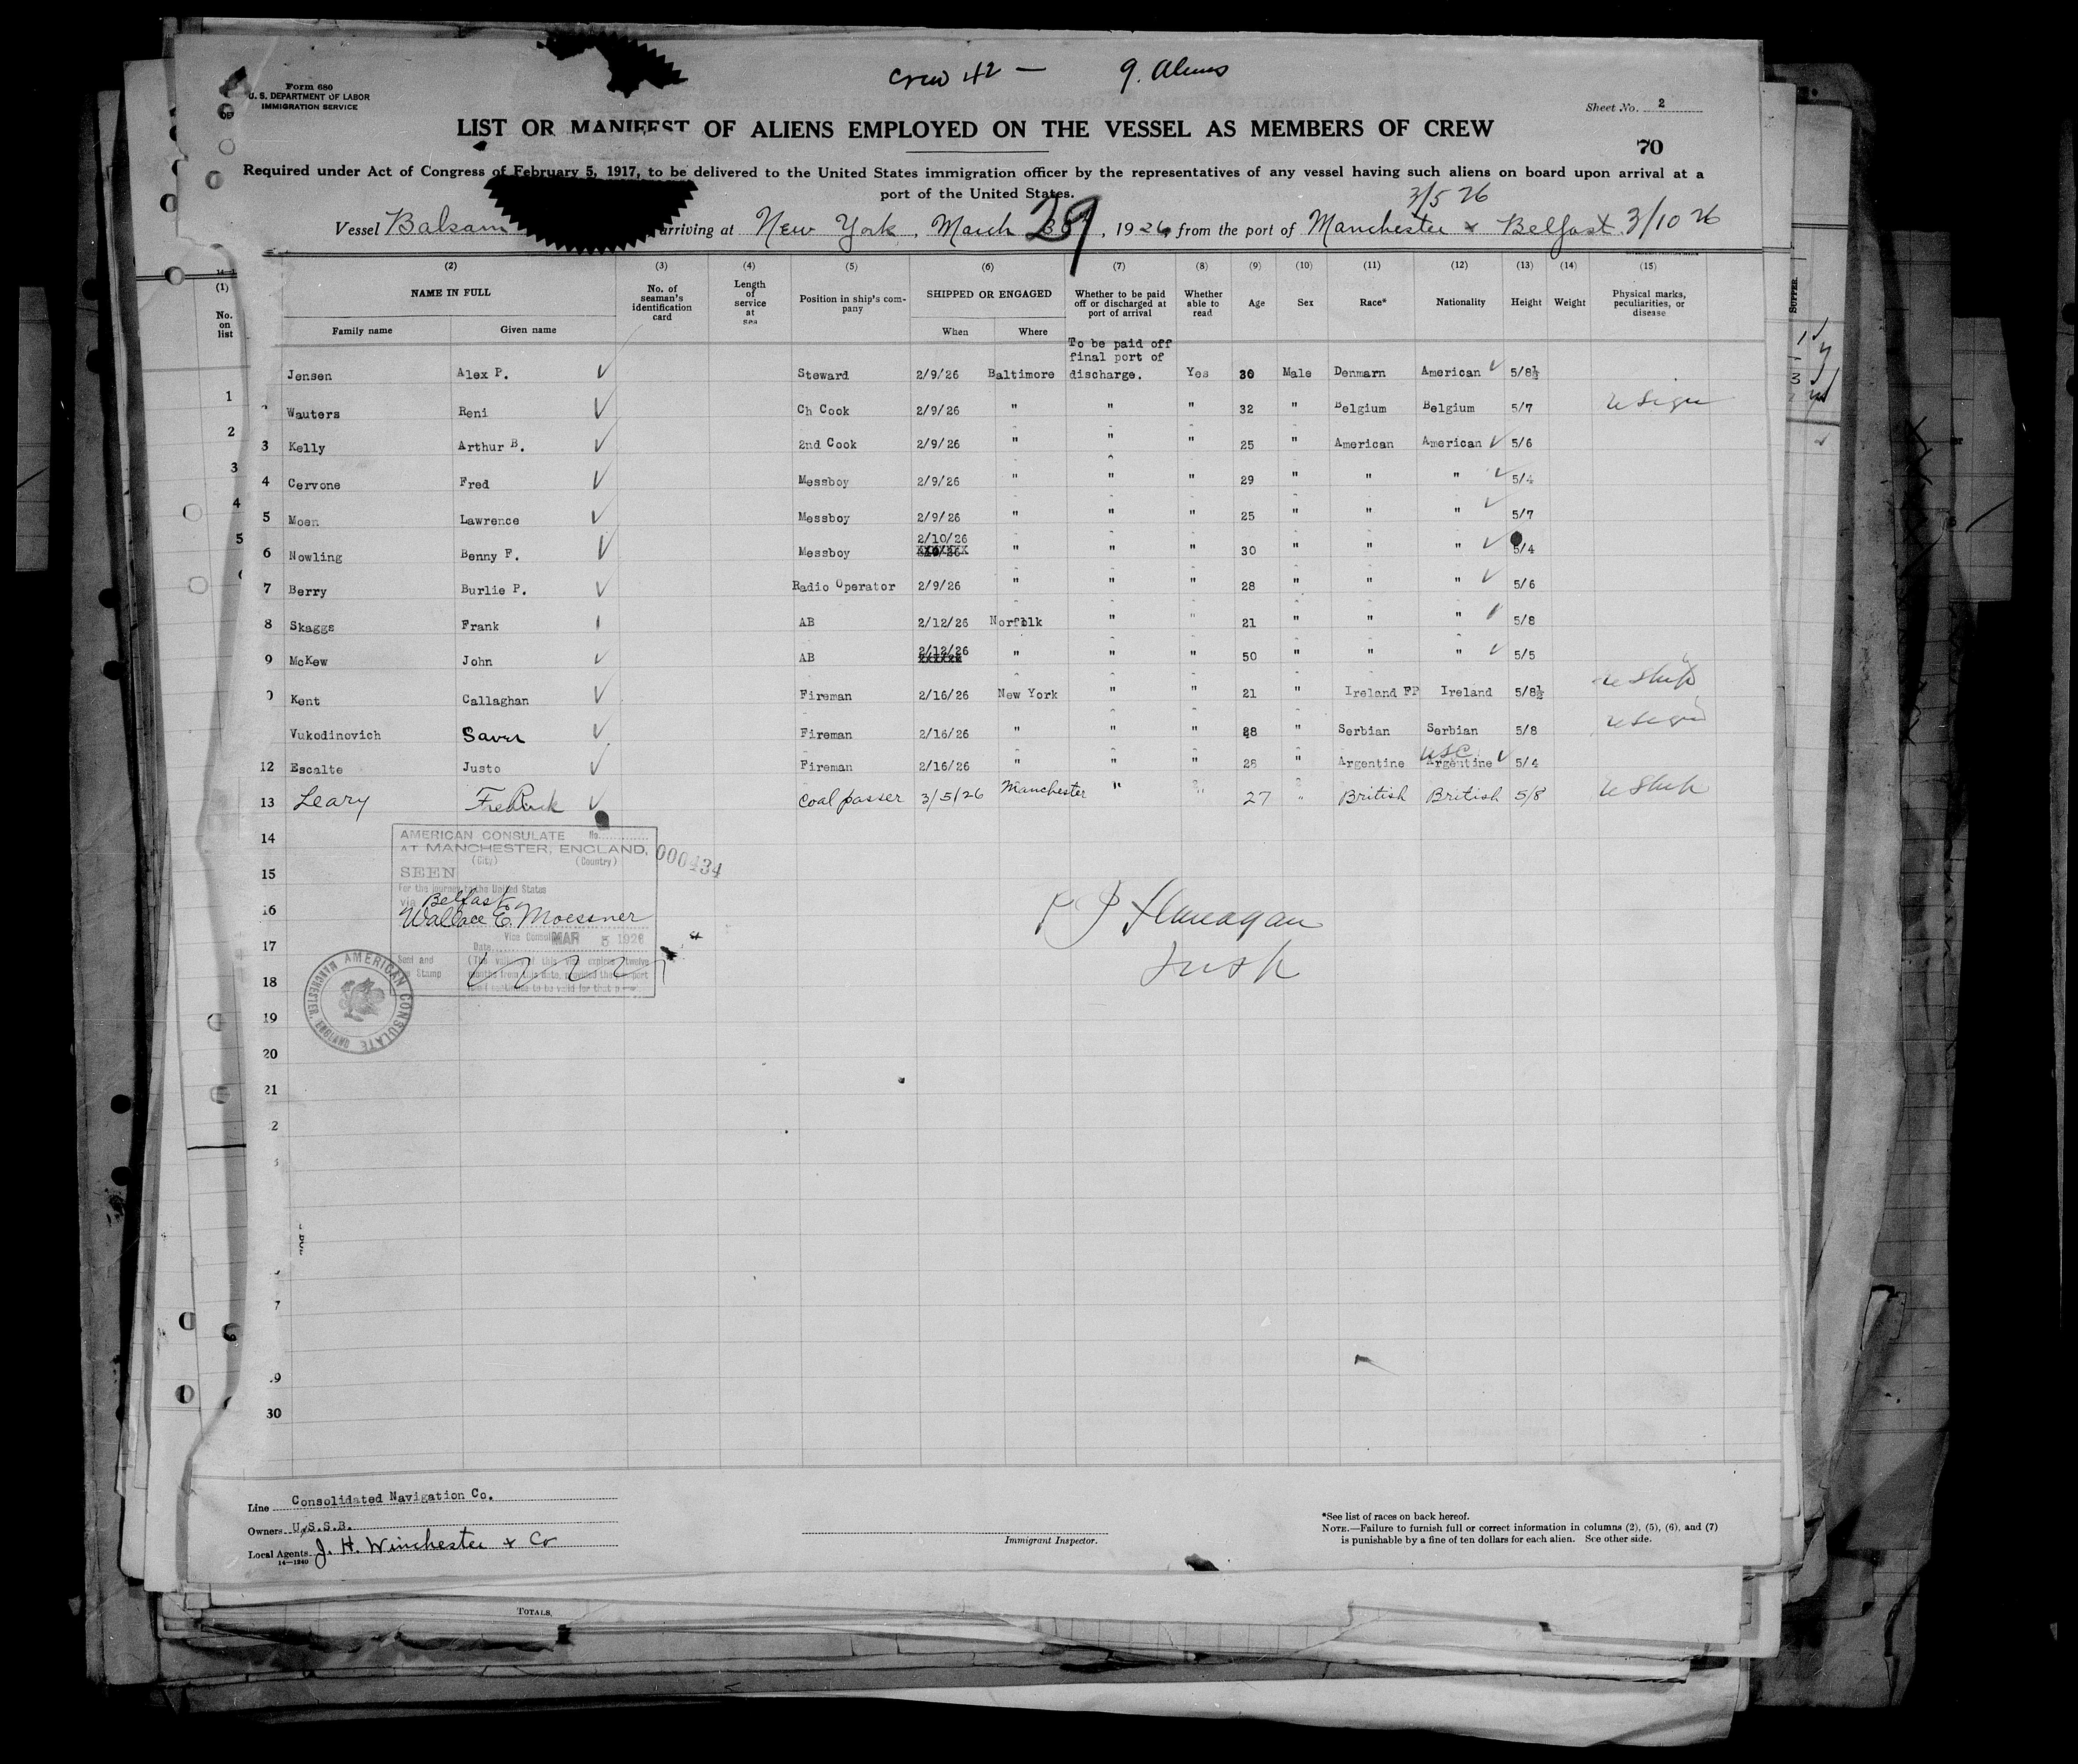 Crew 42 — 9. Aliens
Form 680
U. S. DEPARTMENT OF LABOR
IMMIGRATION SERVICE
Sheet No. 2
LIST OR MANIFEST OF ALIENS EMPLOYED ON THE VESSEL AS MEMBERS OF CREW
70
Required under Act of Congress of February 5, 1917, to be delivered to the United States immigration officer by the representatives of any vessel having such aliens on board upon arrival at a
port of the United States.
3/5 26
Vessel Balsam arriving at New York, March 29, 1926, from the port of Manchester & Belfast 3/10 26
(1) (2) (3) (4) (5) (6) (7) (8) (9) (10) (11) (12) (13) (14) (15)
No. on list NAME IN FULL No. of seaman's identification card Length of service at sea Position in ship's company SHIPPED OR ENGAGED Whether to be paid off or discharged at port of arrival Whether able to read Age Sex Race* Nationality Height Weight Physical marks, peculiarities, or disease
Family name Given name When Where
To be paid off
final port of
Jensen Alex P. ✓ Steward 2/9/26 Baltimore discharge. Yes 30 Male Denmarn American ✓ 5/8½
Wauters Reni ✓ Ch Cook 2/9/26 " " " 32 " Belgium Belgium 5/7
3 Kelly Arthur B. ✓ 2nd Cook 2/9/26 " " " 25 " American American ✓ 5/6
4 Cervone Fred ✓ Messboy 2/9/26 " " " 29 " " " ✓ 5/4
5 Moen Lawrence ✓ Messboy 2/9/26 " " " 25 " " " ✓ 5/7
2/10/26
6 Nowling Benny F. ✓ Messboy " " " 30 " " " ✓ 5/4
7 Berry Burlie P. ✓ Radio Operator 2/9/26 " " " 28 " " " ✓ 5/6
8 Skaggs Frank AB 2/12/26 Norfolk " " 21 " " " 5/8
2/12/26
9 McKew John ✓ AB " " " 50 " " " ✓ 5/5
Kent Callaghan ✓ Fireman 2/16/26 New York " " 21 " Ireland FP Ireland 5/8½
Vukodinovich Saver ✓ Fireman 2/16/26 " " " 28 " Serbian Serbian 5/8
USC
12 Escalte Justo ✓ Fireman 2/16/26 " " " 28 " Argentine Argentine ✓ 5/4
13 Leary Fredrick ✓ Coal passer 3/5/26 Manchester " " 27 " British British 5/8
14
AMERICAN CONSULATE No.
AT MANCHESTER, ENGLAND, 000434
(City) (Country)
15
SEEN
For the journey to the United States
via Belfast
16
Wallace E. Moessner
Vice Consul MAR 5 1926
P J Flanagan
17
Date
Seal and Stamp
(The validity of this visa expires twelve
months from this date, provided the passport
continues to be valid for that
18
AMERICAN CONSULATE MANCHESTER, ENGLAND
19
20
21
30
Line Consolidated Navigation Co.
Owners U.S.S.B.
Local Agents J. H. Winchester & Co
14—1240
Immigrant Inspector.
*See list of races on back hereof.
NOTE.—Failure to furnish full or correct information in columns (2), (5), (6), and (7)
is punishable by a fine of ten dollars for each alien. See other side.
TOTALS,